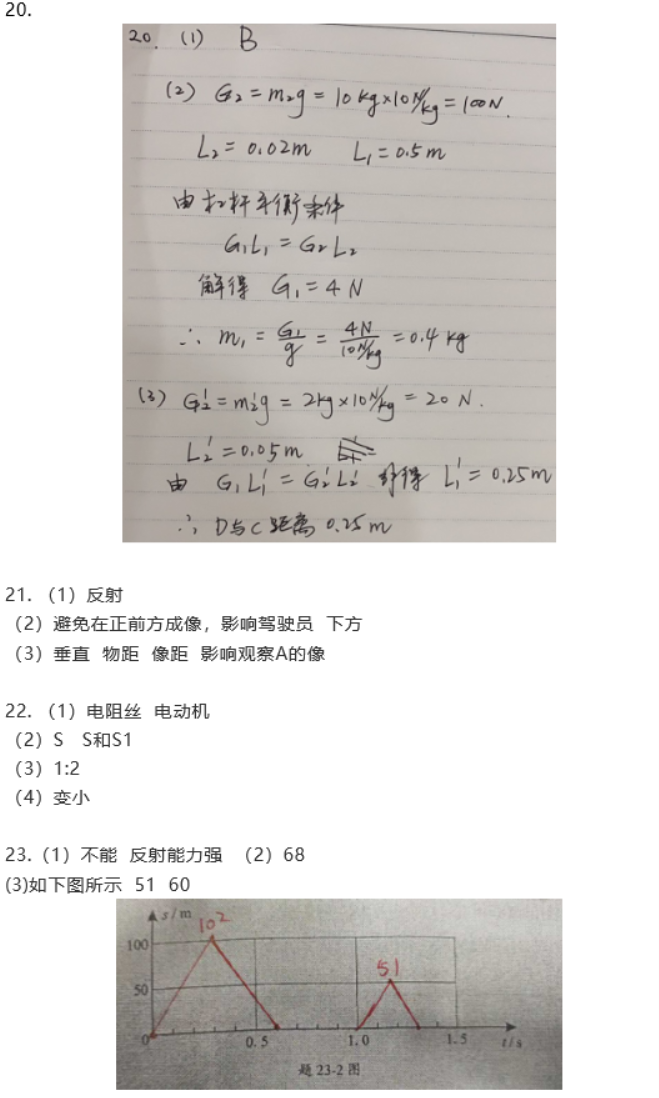 20.
20. (1) B
(2) G₂ = m₂g = 10kg×10N/kg = 100N.
L₂ = 0.02m L₁ = 0.5m
由杠杆平衡条件
G₁L₁ = G₂L₂
解得 G₁ = 4N
∴ m₁ = G₁/g = 4N/10N/kg = 0.4kg
(3) G₂′ = m₂′g = 2kg×10N/kg = 20N.
L₂′ = 0.05m
由 G₁L₁′ = G₂′L₂′ 解得 L₁′ = 0.25m
∴ D与C距离 0.25m
21. (1) 反射
(2) 避免在正前方成像，影响驾驶员 下方
(3) 垂直 物距 像距 影响观察A的像
22. (1) 电阻丝 电动机
(2) S S和S1
(3) 1:2
(4) 变小
23. (1) 不能 反射能力强 (2) 68
(3)如下图所示 51 60
s/m
102
100
51
50
0 0.5 1.0 1.5 t/s
题 23-2 图